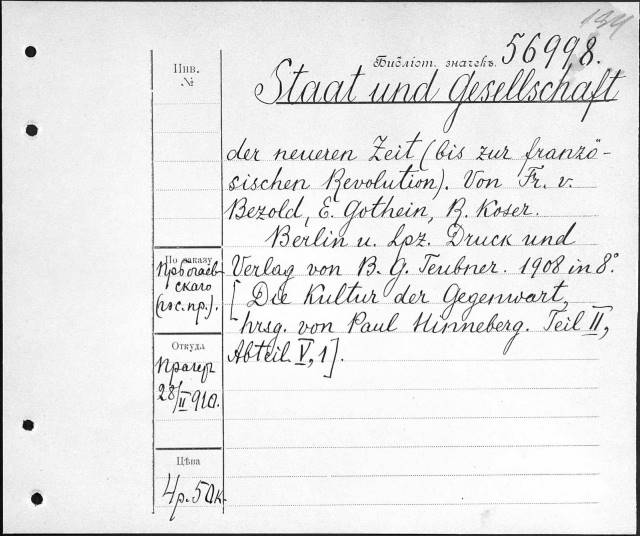 134
Библіот. значекъ. 56998.
Инв.
№
Staat und Gesellschaft
der neueren Zeit (bis zur franzö-
sischen Revolution). Von Fr. v.
Bezold, E. Gothein, R. Koser.
Berlin u. Lpz. Druck und
По заказу
Verlag von B. G. Teubner. 1908 in 8°
скаго
[Die Kultur der Gegenwart,
(гос. пр.).
hrsg. von Paul Hinneberg. Teil II,
Откуда
Abteil. V, 1].
Прагер
28/II 910.
Цѣна
4 р. 50 к.